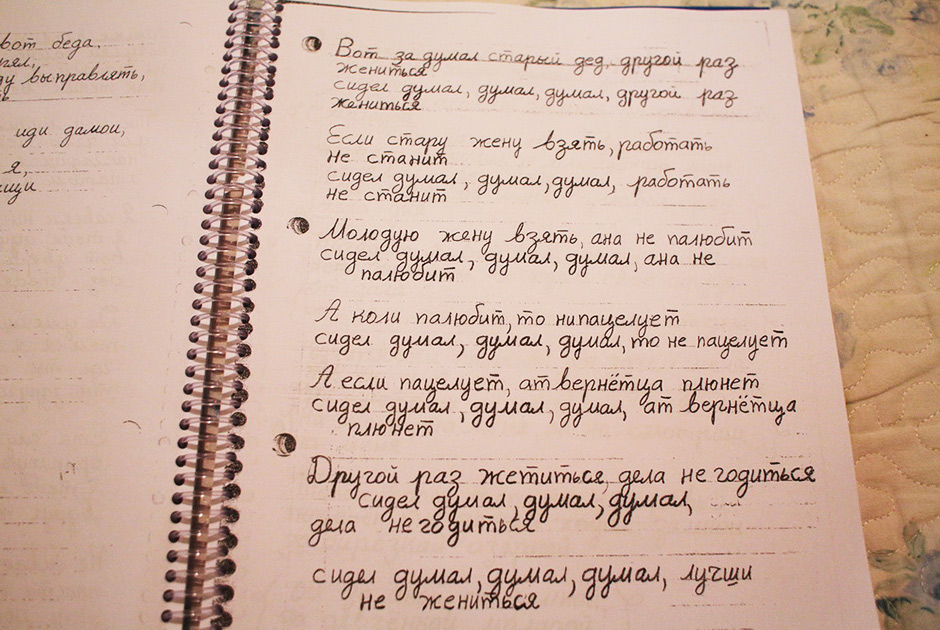 вот беда,
ду выправлять,
иди дамои,
я,
Вот за думал старый дед, другой раз
жениться
сидел думал, думал, думал, другой раз
жениться
Если стару жену взять, работать
не станит
сидел думал, думал, думал, работать
не станит
Молодую жену взять, ана не палюбит
сидел думал, думал, думал, ана не
палюбит
А коли палюбит, то нипацелует
сидел думал, думал, думал, то не пацелует
А если пацелует, атвернётца плюнет
сидел думал, думал, думал, ат вернётца
плюнет
Другой раз жетиться, дела не годиться
сидел думал, думал, думал,
дела не годиться
сидел думал, думал, думал, лучши
не жениться